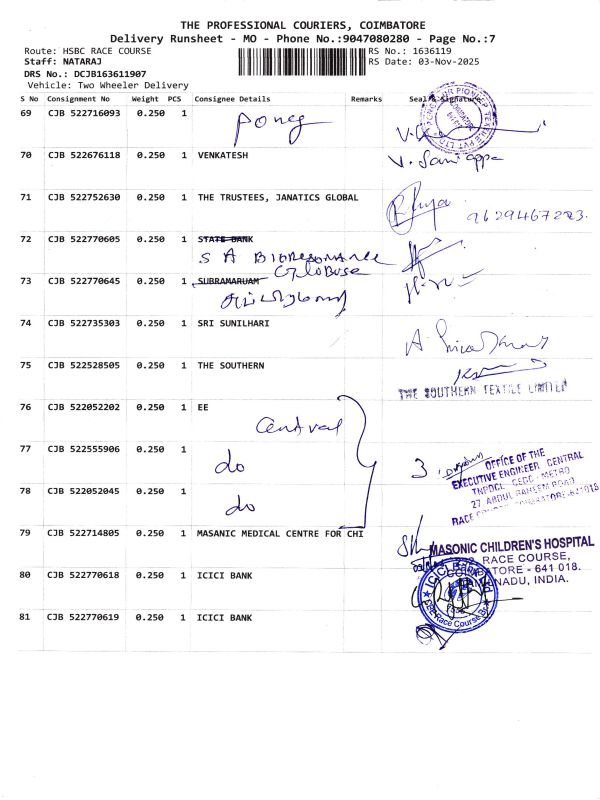 THE PROFESSIONAL COURIERS, COIMBATORE
Delivery Runsheet - MO - Phone No.:9047080280 - Page No.:7
Route: HSBC RACE COURSE
RS No.: 1636119
Staff: NATARAJ
RS Date: 03-Nov-2025
DRS No.: DCJB163611907
Vehicle: Two Wheeler Delivery
S No Consignment No Weight PCS Consignee Details Remarks Seal & Signature
69 CJB 522716093 0.250 1
70 CJB 522676118 0.250 1 VENKATESH
71 CJB 522752630 0.250 1 THE TRUSTEES, JANATICS GLOBAL
72 CJB 522770605 0.250 1 STATE BANK
S A BIORESONANCE
73 CJB 522770645 0.250 1 SUBRAMARUAM
74 CJB 522735303 0.250 1 SRI SUNILHARI
75 CJB 522528505 0.250 1 THE SOUTHERN
THE SOUTHERN TEXTILE LIMITED
76 CJB 522052202 0.250 1 EE
Central
77 CJB 522555906 0.250 1
do
3
OFFICE OF THE
EXECUTIVE ENGINEER CENTRAL
78 CJB 522052045 0.250 1
do
79 CJB 522714805 0.250 1 MASANIC MEDICAL CENTRE FOR CHI
MASONIC CHILDREN'S HOSPITAL
RACE COURSE,
641 018.
INDIA.
80 CJB 522770618 0.250 1 ICICI BANK
81 CJB 522770619 0.250 1 ICICI BANK